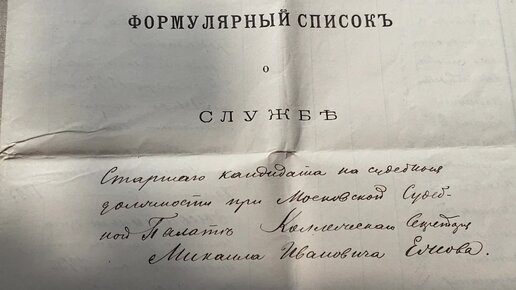 ФОРМУЛЯРНЫЙ СПИСОКЪ
о
СЛУЖБѢ
Старшаго кандидата на судебныя
должности при Московской Судеб-
ной Палатѣ Коллежскаго Секретаря
Михаила Ивановича